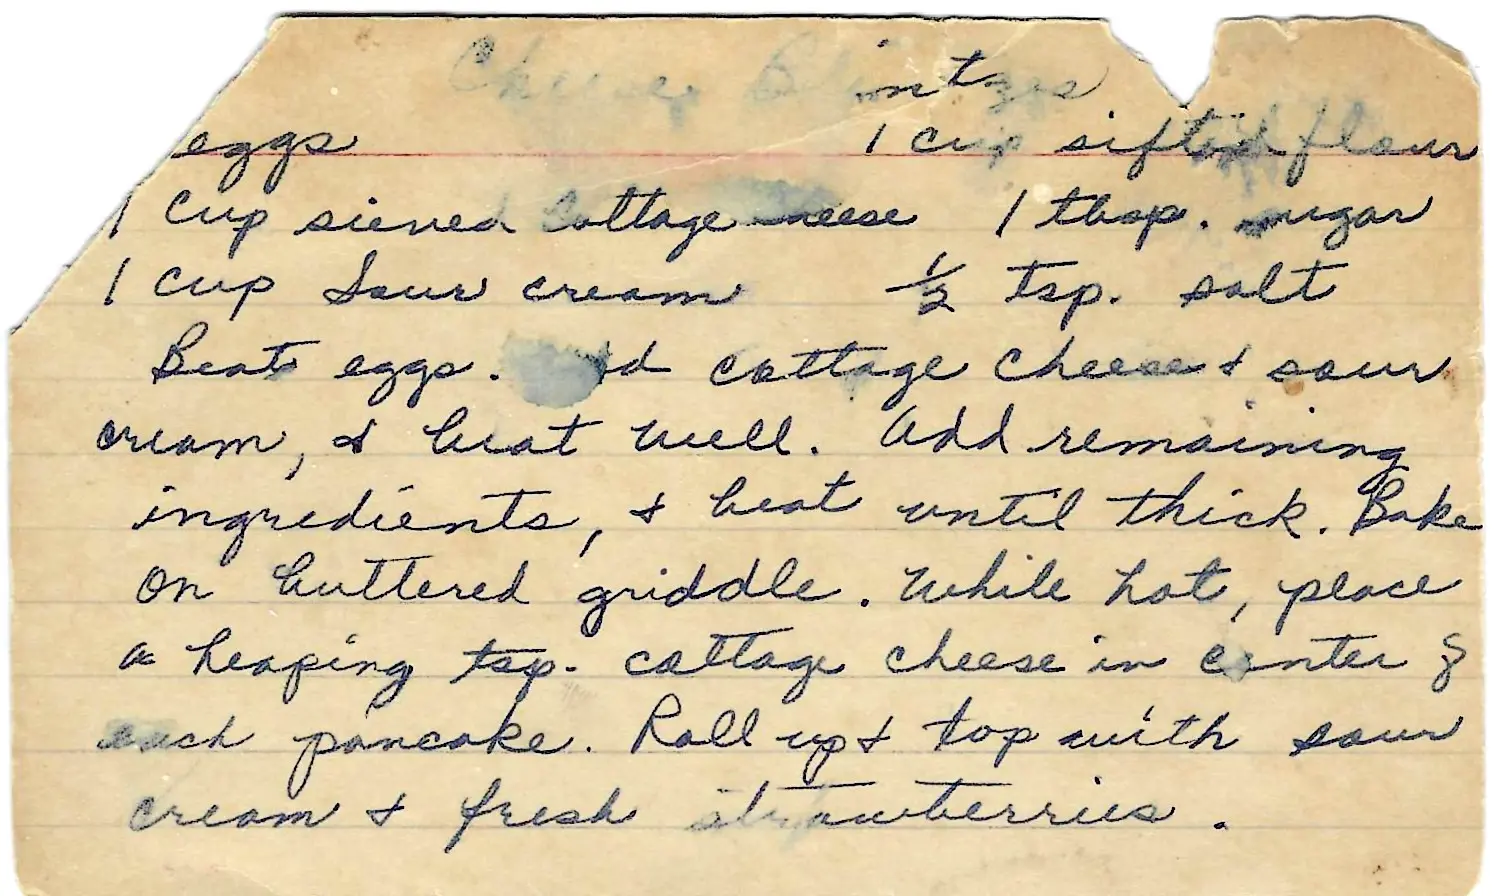 Cheese Blintzes
eggs 1 cup sifted flour
1 cup sieved cottage cheese 1 tbsp. sugar
1 cup sour cream 1/2 tsp. salt
Beat eggs. Add cottage cheese & sour
cream, & beat well. Add remaining
ingredients, & beat until thick. Bake
on buttered griddle. While hot, place
a heaping tsp. cottage cheese in center of
each pancake. Roll up & top with sour
cream & fresh strawberries.